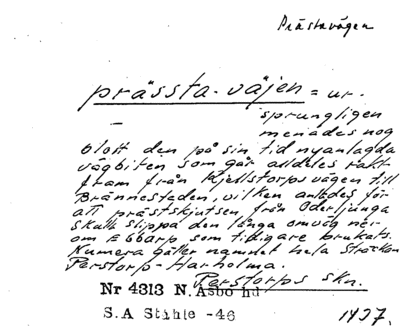 Prästavägen
prässta-väjen = ur-
sprungligen
menades nog
blott den på sin tid nyanlagda
vägbiten som går alldeles rakt
fram från Kjellstorpsvägen till
Brännestaden, vilken anlades för
att prästskjutsen från Oderljunga
skulle slippa den långa omväg ner
om Ebbarp som tidigare brukats.
Numera gäller namnet hela sträckan
Perstorp-Harholma.
Perstorps skn.
Nr 4313 N. Åsbo hd
S.A Ståhle -46
1937.